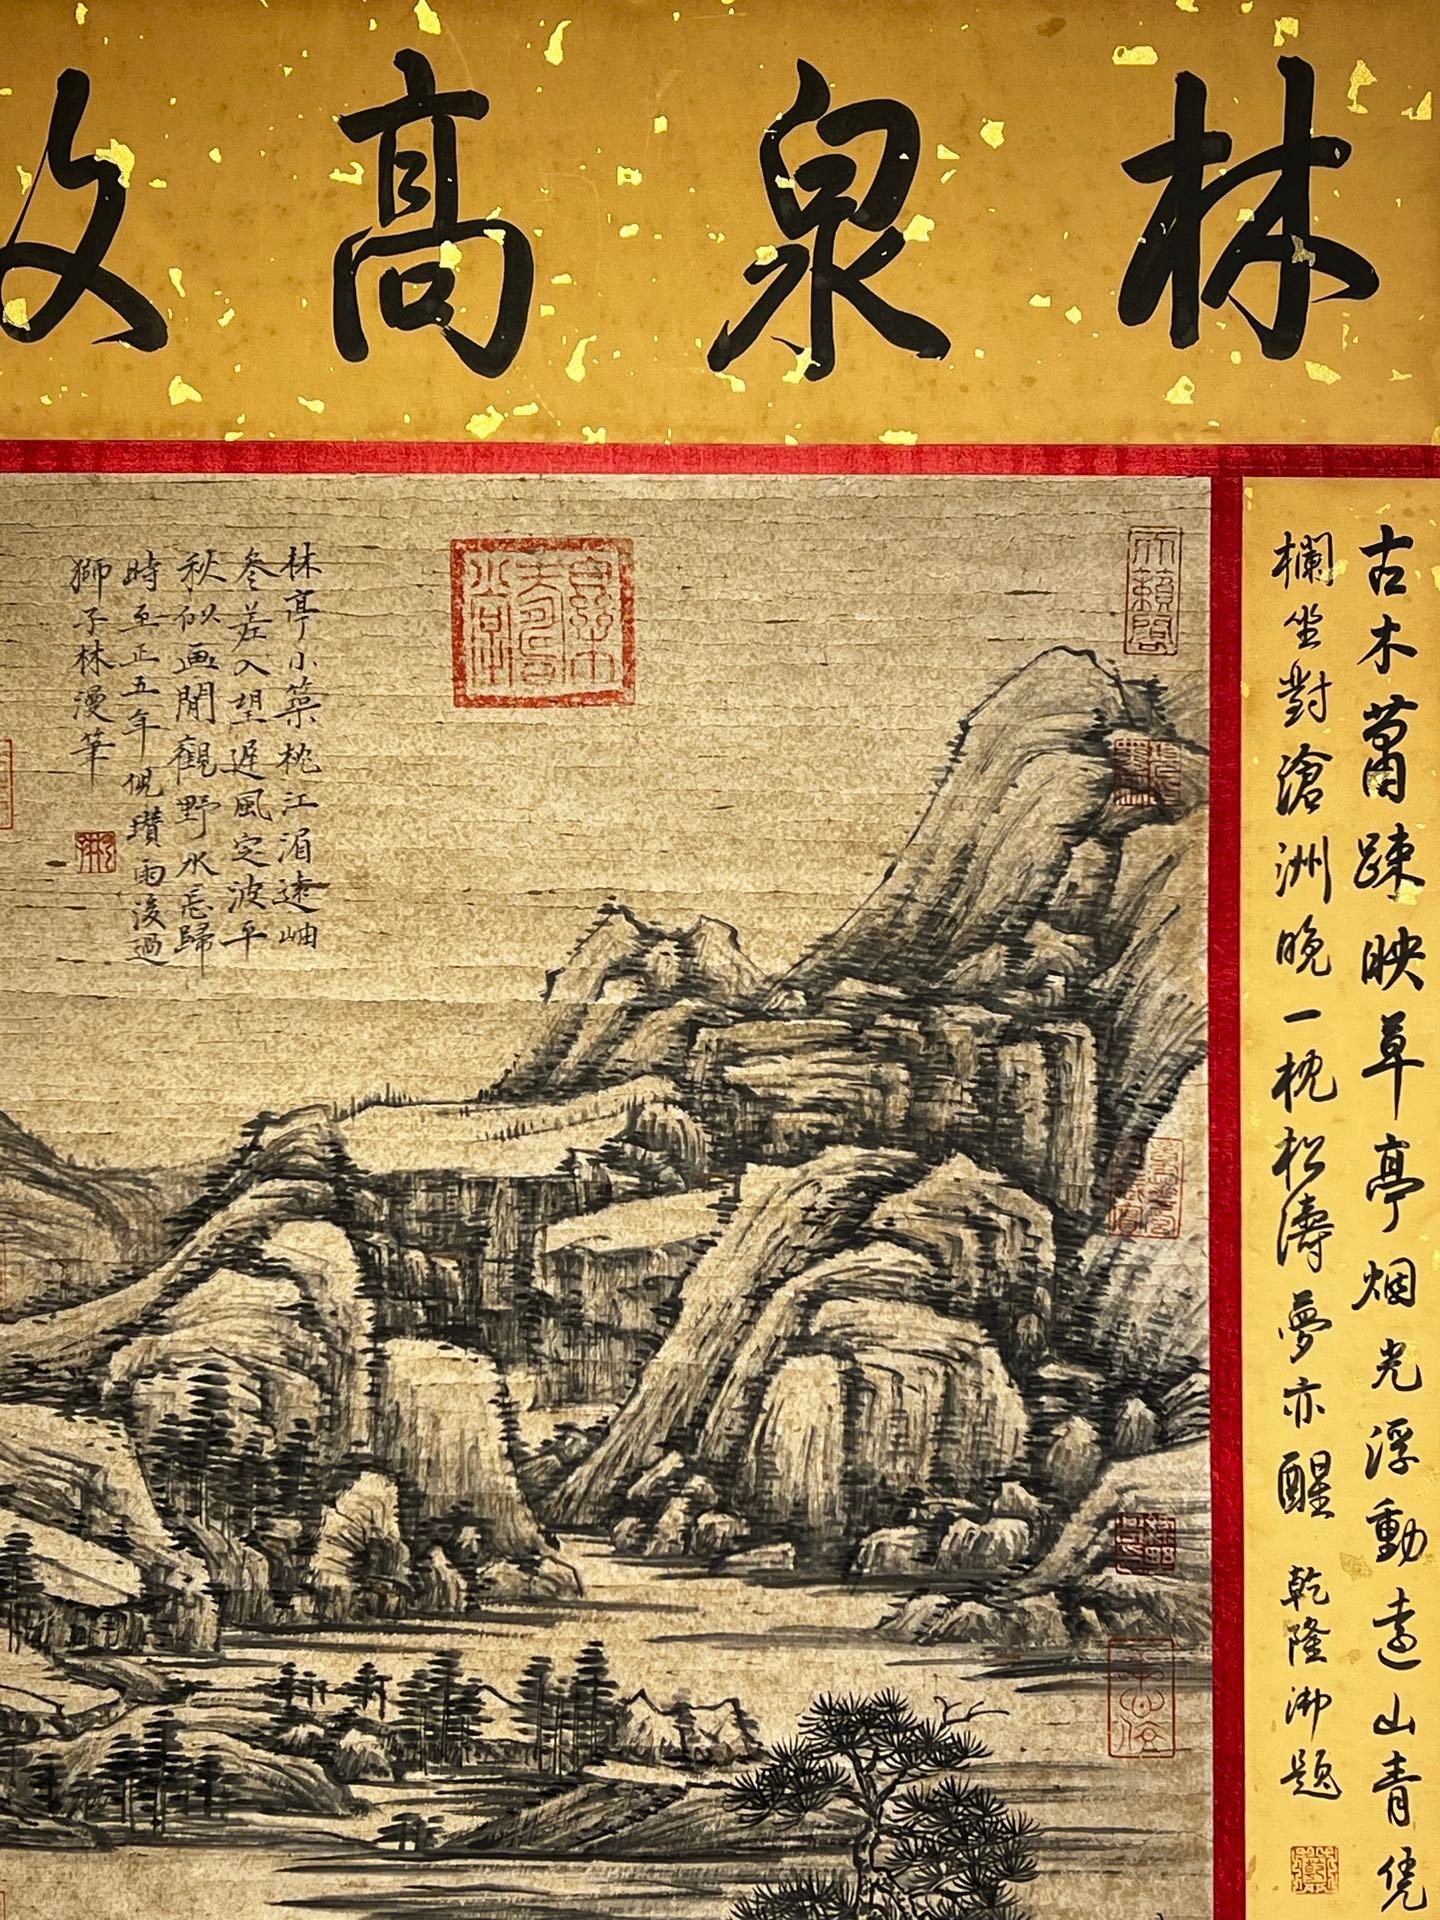 林泉高致
林亭小築枕江湄遠岫
參差入望遲風定波平
秋似画閒觀野水忘歸
時至正五年倪瓚雨後過
獅子林漫筆
古木蕭疎映草亭烟光浮動遠山青凭
欄坐對滄洲晚一枕松濤夢亦醒
乾隆御題
天籟閣